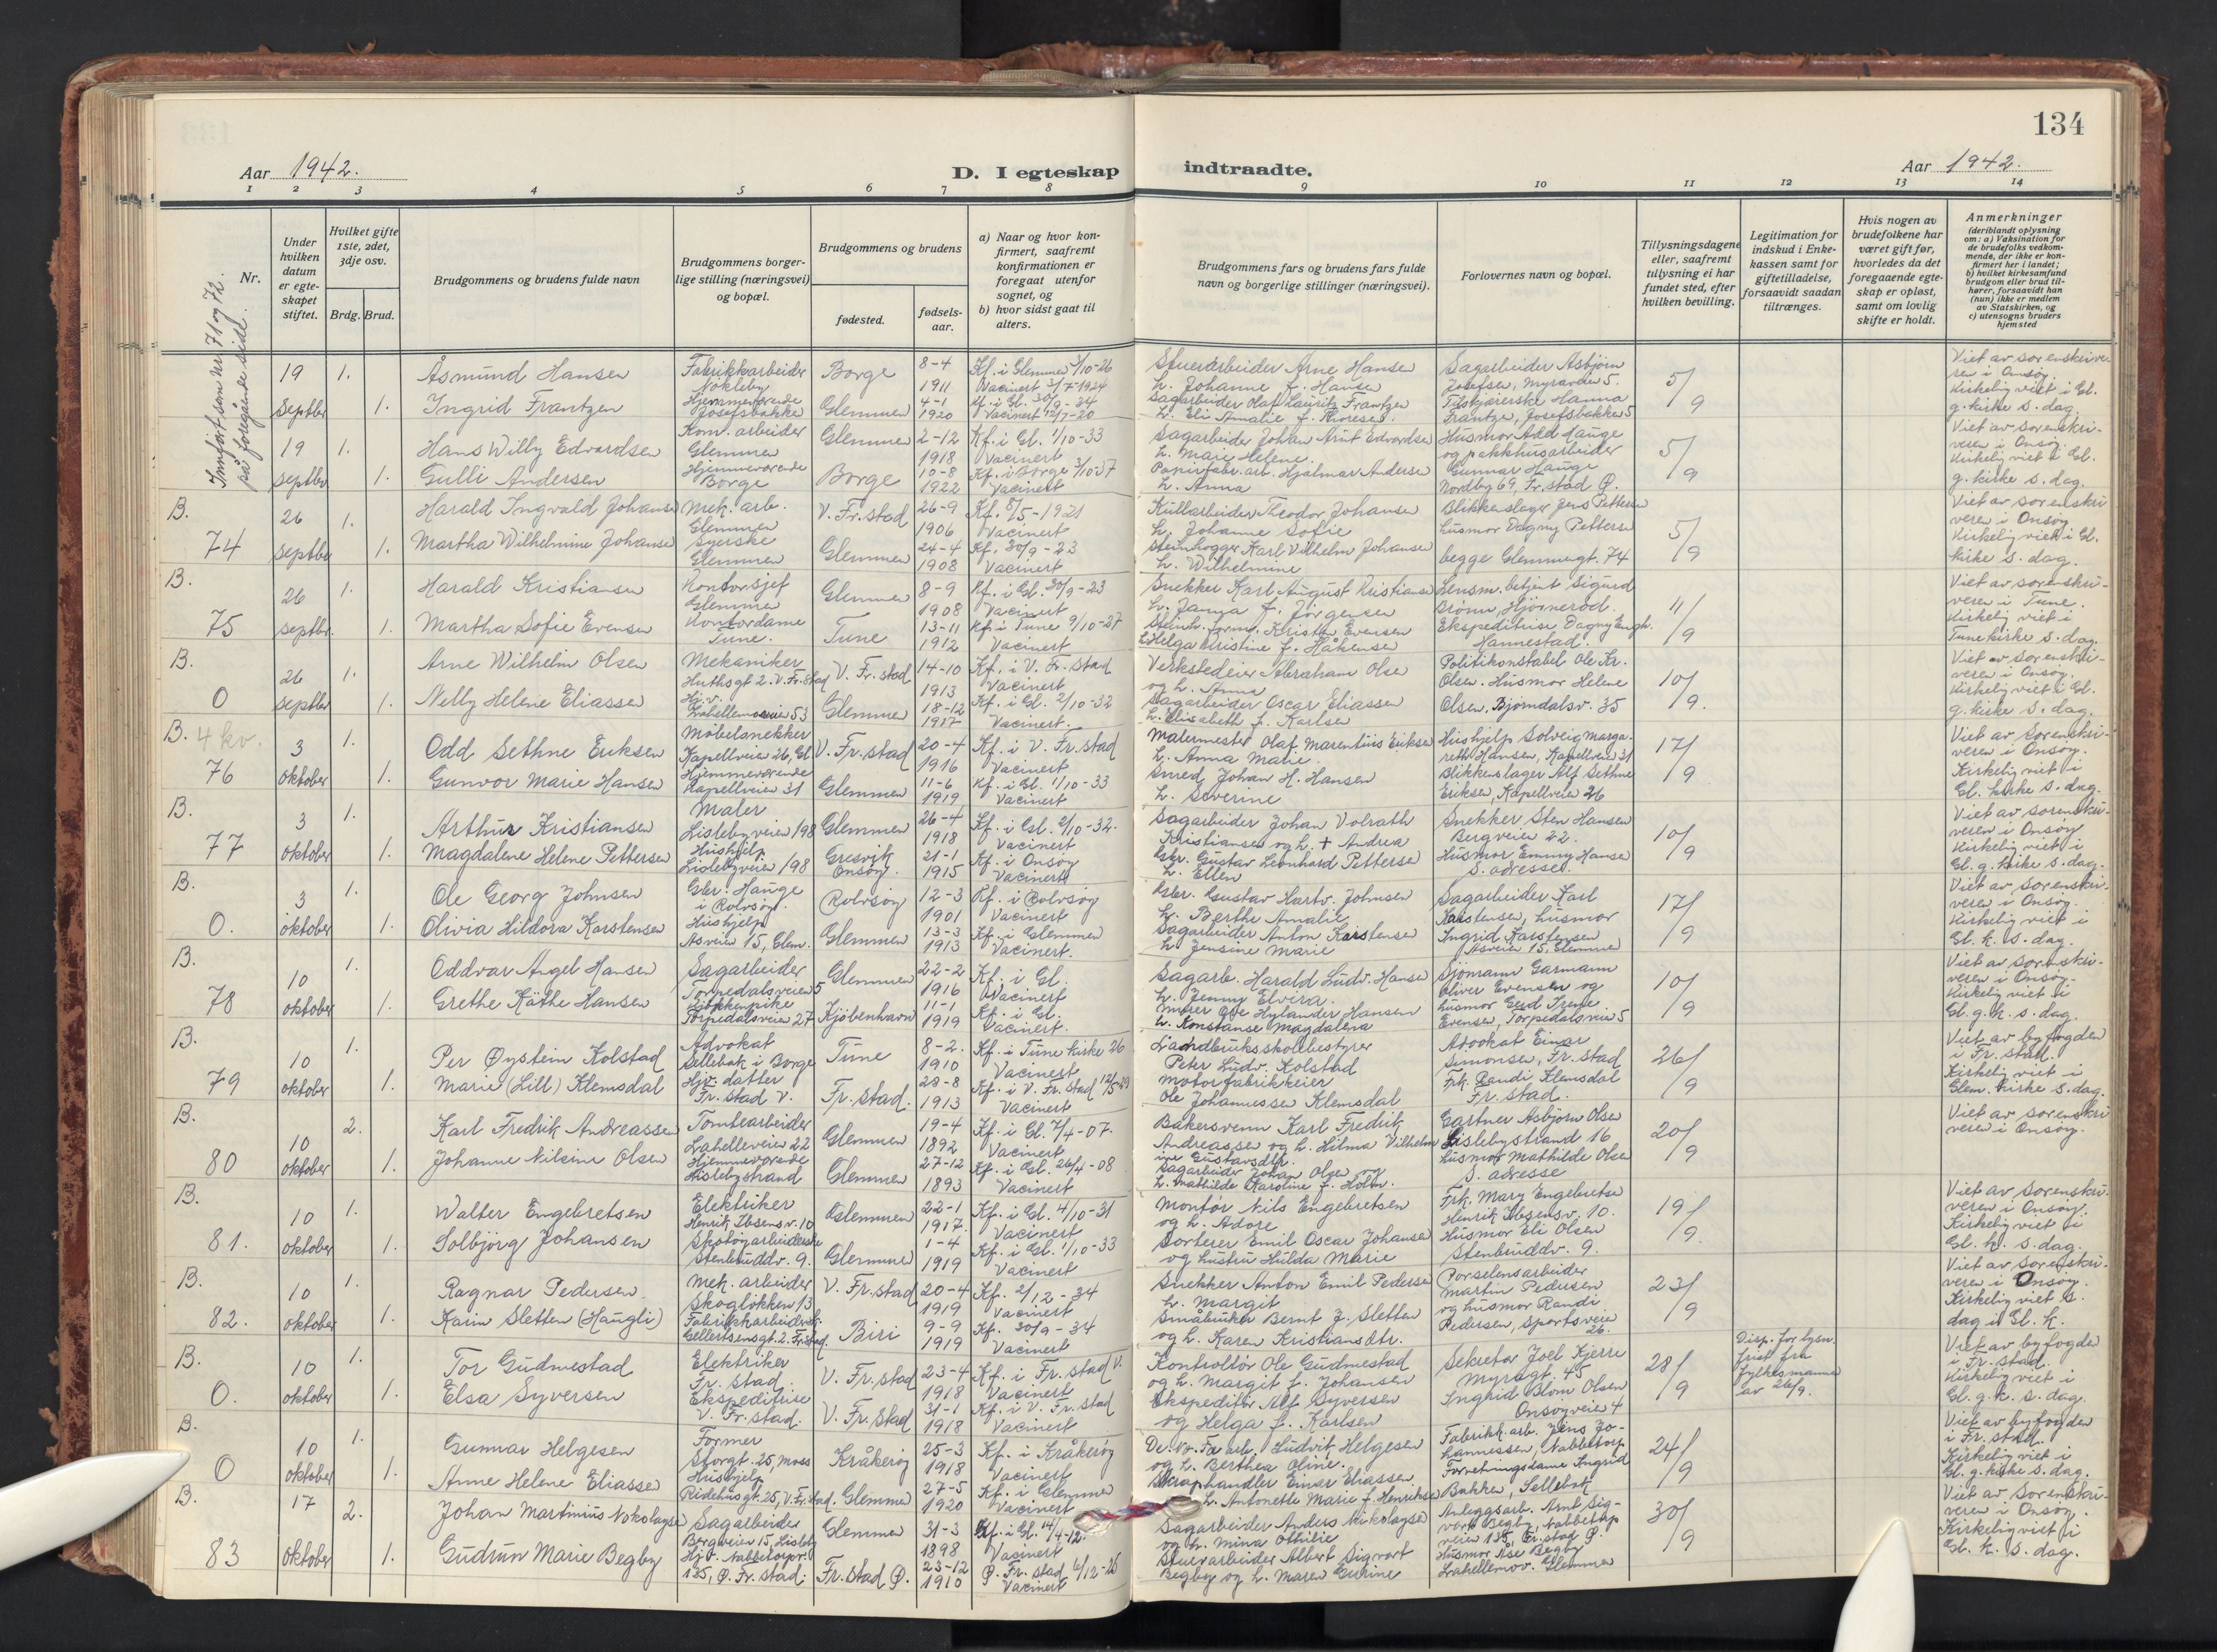 134
Aar 1942.
D. I egteskap indtraadte.
Aar 1942.
1 2 3 4 5 6 7 8 9 10 11 12 13 14
Nr.
Under hvilken datum er egteskapet stiftet.
Hvilket gifte 1ste, 2det, 3dje osv.
Brdg. Brud.
Brudgommens og brudens fulde navn
Brudgommens borgerlige stilling (næringsvei) og bopæl.
Brudgommens og brudens
fødested.
fødselsaar.
a) Naar og hvor konfirmert, saafremt konfirmationen er foregaat utenfor sognet, og
b) hvor sidst gaat til alters.
Brudgommens fars og brudens fars fulde navn og borgerlige stillinger (næringsvei).
Forlovernes navn og bopæl.
Tillysningsdagene eller, saafremt tillysning ei har fundet sted, efter hvilken bevilling.
Legitimation for indskud i Enkekassen samt for giftetilladelse, forsaavidt saadan tiltrænges.
Hvis nogen av brudefolkene har været gift før, hvorledes da det foregaaende egteskap er opløst, samt om lovlig skifte er holdt.
Anmerkninger (deriblandt oplysning om: a) Vaksination for de brudefolks vedkommende, der ikke er konfirmert her i landet; b) hvilket kirkesamfund brudgom eller brud tilhører, forsaavidt han (hun) ikke er medlem av Statskirken, og c) utensogns bruders hjemsted
Innført som nr 71 og 72
på foregående side.
19 septbr 1. Åsmund Hansen Fabrikkarbeider Nokleby Borge 8-4 1911 Kf. i Glemmen 3/10-26 Vacinert 3/7-1924
Stuerarbeider Arne Hansen h. Johanne f. Hansen Sagarbeider Asbjørn Josefsen, Myraveien 5. 5/9 Viet av sorenskriveren i Onsøy. Kirkelig viet i Gl. g. kirke s. dag.
1. Ingrid Frantzen Hjemmeværende Josefsbakke Glemmen 4-1 1920 Kf. i Gl. 30/9-34 Vacinert 12/7-20
Sagarbeider Olaf Lauritz Frantzen h. Eli Amalie f. Thoresen
19 septbr 1. Hans Willy Edvardsen Kom. arbeider Glemmen Glemmen 2-12 1918 Kf. i Gl. 1/10-33 Vacinert
Sagarbeider Johan Arnt Edvardsen h. Marie Helene. Husmor Add Hauge og pakkhusarbeider Gunnar Hauge Nordby 69, Fr.stad Ø. 5/9 Viet av sorenskriveren i Onsøy. Kirkelig viet i Gl. g. kirke s. dag.
1. Gulli Andersen Hjemmeværende Borge Borge 10-8 1922 Kf. i Borge 3/10-37 Vacinert
Papirfabr. arb. Hjalmar Andersen h. Anna
B. 74 26 septbr 1. Harald Ingvald Johansen Mek. arb. Glemmen V. Fr.stad 26-9 1906 Kf. 8/5-1921 Vacinert
Kullarbeider Teodor Johansen h. Johanne Sofie Blikkenslager Jens Pettersen husmor Dagny Pettersen begge Glemmengt. 74 5/9 Viet av sorenskriveren i Onsøy. Kirkelig viet i Gl. kirke s. dag.
1. Martha Wilhelmine Johansen Syerske Glemmen Glemmen 24-4 1908 Kf. 30/9-23 Vacinert
Steinhogger Karl Vilhelm Johansen h. Wilhelmine
B. 75 26 septbr. 1. Harald Kristiansen Kontorsjef Glemmen Glemmen 8-9 1908 Kf. i Gl. 30/9-23 Vacinert
Snekker Karl August Kristiansen h. Janna f. Jörgensen Lensm. betjent Sigurd Brønn, Hjørnerød. Ekspeditrise Dagny Engh. Hannestad. 11/9 Viet av sorenskriveren i Tune. Kirkelig viet i Tune kirke s. dag.
1. Martha Sofie Evensen Kontordame Tune. Tune 13-11 1912 Kf. i Tune 9/10-27 Vacinert
Kristen Evensen h. Helga Kristine f. Håkensen
B. 0 26 septbr 1. Arne Wilhelm Olsen Mekaniker Huthsgt 2. V. Fr.stad V. Fr. stad 14-10 1913 Kf. i V. Fr. stad Vacinert
Verkstedeier Abraham Olsen og h. Anna Politikonstabel Ole Kr. Olsen. Husmor Helene Olsen, Bjørndalsv. 35 10/9. Viet av sorenskriveren i Onsøy. Kirkelig viet i Gl. g. kirke s. dag.
1. Nelly Helene Eliassen Hj.v. Lahellemoveien 53 Glemmen 18-12 1917 Kf. i Gl. 2/10-32 Vacinert.
Sagarbeider Oscar Eliassen h. Elisabeth f. Karlsen
B. 4 kv. 76 3 oktober 1. Odd Sethne Eriksen Møbelsnekker Kapellveien 26, Gl. V. Fr.stad 20-4 1916 Kf. i V. Fr. stad Vacinert
Malermester Olaf Marentius Eriksen h. Anna Marie. Hushjelp Solveig Margareth Hansen, Kapellveien 31 Blikkenslager Alf Sethne Eriksen, Kapellveien 26 17/9 Viet av sorenskriveren i Onsøy. Kirkelig viet i Gl. kirke s. dag.
1. Gunvor Marie Hansen Hjemmeværende Kapellveien 31 Glemmen 11-6 1919 Kf. i Gl. 1/10-33 Vacinert
Smed Johan H. Hansen h. Severine
B. 77 3 oktober 1. Arthur Kristiansen Maler Lislebyveien 198 Glemmen 26-4 1918 Kf. i Gl. 2/10-32. Vacinert
Sagarbeider Johan Volrath Kristiansen og h. + Andrea Snekker Sten Hansen Bergveien 22. Husmor Emmy Hansen S. adresse. 10/9 Viet av sorenskriveren i Onsøy. Kirkelig viet i Gl. g. kirke s. dag.
1. Magdalene Helene Pettersen Hushjelp Lislebyveien 198 Gresvik Onsøy. 21-1 1915 Kf. i Onsøy Vacinert
Gbr. Gustav Leonhard Pettersen h. Ellen
B. 0. 3 oktober 1. Ole Georg Johnsen Gbr. Hauge i Rolvsøy. Rolvsøy 12-3 1901 Kf. i Rolvsøy Vacinert
Gbr. Gustav Hartv. Johnsen h. Berthe Amalie Sagarbeider Karl Karstensen, husmor Ingrid Karstensen Åsveien 15, Glemmen 17/9 Viet av sorenskriveren i Onsøy. Kirkelig viet i Gl. k. s. dag.
1. Olivia Hildora Karstensen Hushjelp Åsveien 15, Glem. Glemmen 13-3 1913 Kf. i Glemmen Vacinert.
Sagarbeider Anton Karstensen h. Jensine Marie
B. 78 10 oktober 1. Oddvar Angel Hansen Sagarbeider Torpedalsveien 5 Glemmen 22-2 1916 Kf. i Gl. Vacinert
Sagarb. Harald Ludv. Hansen h. Jenny Elvira. Sjømann Garmann Oliver Evensen og husmor Gerd Irene Evensen, Torpedalsveien 5 10/9 Viet av sorenskriveren i Onsøy. Kirkelig viet i Gl. g. k. s. dag.
1. Grethe Käthe Hansen Torpedalsveien 27 Kjøbenhavn 11-1 1919 Kf. i Gl. Vacinert.
Murer Ove Hylander Hansen h. Konstanse Magdalena
B. 79 10 oktober 1. Per Øystein Kolstad Advokat Sellebak i Borge Tune 8-2. 1910 Kf. i Tune kirke 26 Vacinert
Landbruksskolebestyrer Peter Ludv. Kolstad Advokat Einar Simonsen, Fr. stad Frk. Randi Klemsdal Fr. stad. 26/9 Viet av byfogden i Fr. stad. Kirkelig viet i Glem. kirke s. dag.
1. Marie (Lill) Klemsdal Hjv. datter Fr. stad V. Fr. stad. 28-8 1913 Kf. i V. Fr. stad 12/5-29 Vacinert
Motorfabrikkeier Ole Johannessen Klemsdal
B. 80 10 oktober 2. Karl Fredrik Andreassen Tomtearbeider Lahelleveien 22 Glemmen 19-4 1892 Kf. i Gl. 7/4-07. Vacinert
Bakersvenn Karl Fredrik Andreassen og h. Hilma Vilhelmine Gustavsdtr. Gartner Asbjørn Olsen Lislebystrand 16 husmor Mathilde Olsen S. adresse 20/9 Viet av sorenskriveren i Onsøy.
1. Johanne Nilsine Olsen Hjemmeværende Lislebystrand Glemmen 27-12 1893 Kf. i Gl. 26/4-08 Vacinert
Sagarbeider Johan Olsen og h. Mathilde Karoline f. Holm.
B. 81. 10 oktober 1. Walter Engebretsen Elektriker Henrik Ibsensv. 10 Glemmen 22-1 1917. Kf. i Gl. 4/10-31 Vacinert
Montør Nils Engebretsen og h. Adore Frk. Mary Engebretsen Henrik Ibsensv. 10. Husmor Eli Olsen Stenbruddv. 9. 19/9. Viet av sorenskriveren i Onsøy. Kirkelig viet i Gl. k. s. dag.
1. Solbjørg Johansen Skotøyarbeiderske Stenbruddv. 9. Glemmen 1-4 1919 Kf. i Gl. 1/10-33 Vacinert
Sorterer Emil Oscar Johansen og hustru Hulda Marie
B. 82. 10 oktober 1. Ragnar Pedersen Mek. arbeider Skogløkken 13 V. Fr. stad 20-4 1919 Kf. 2/12-34 Vacinert
Snekker Anton Emil Pedersen h. Margit Porselensarbeider Martin Pedersen og husmor Randi Pedersen, Sportsveien 26. 23/9 Viet av sorenskriveren i Onsøy. Kirkelig viet s. dag i Gl. k.
1. Karin Sletten (Haugli) Fabrikkarbeiderske Gellertsensgt. 2. Fr.stad. Biri 9-9 1919 Kf. 30/9-34 Vacinert
Småbruker Bernt J. Sletten og h. Karen Kristiansdtr.
B. 0. 10 oktober 1. Tor Gudmestad Elektriker Fr. stad V. Fr. stad 23-4 1918 Kf. i Fr. stad V. Vacinert
Kontrollør Ole Gudmestad og h. Margit f. Johansen Sekretær Joel Kjerre Myragt. 45 Ingrid Blom Olsen Onsøyveien 4 28/9 Disp. for lysn. frist fra fylkesmannen av 26/9. Viet av byfogden i Fr. stad. Kirkelig viet i Gl. g. k. s. dag.
1. Elsa Syversen Ekspeditrise V. Fr. stad. V. Fr. stad 31-1 1918 Kf. i V. Fr. stad Vacinert
Ekspeditør Alf Syversen og Helga f. Karlsen
B. 0 10 oktober 1. Gunnar Helgesen Former Storgt. 25, Moss Kråkerøy 25-3 1918 Kf. i Kråkerøy Vacinert
De No Fa arb. Ludvik Helgesen og h. Berthea Oline. Fabrikk. arb. Jens Johannessen, Nabbetorp Forretningsdame Ingrid Bakken, Sellebak 24/9 Viet av byfogden i Fr. stad. Kirkelig viet i Gl. g. kirke s. dag.
1. Anne Helene Eliassen Hushjelp Ridehusgt. 25, V. Fr. stad. Glemmen 27-5 1920 Kf. i Glemmen Vacinert
Skraphandler Einar Eliassen h. Antonette Marie f. Henriksen
B. 83 17 oktober 2. Johan Martinius Nokolaysen Sagarbeider Bergveien 15, Lisleby Glemmen 31-3 1898 Kf. i Gl. 14/4-12. Vacinert
Sagarbeider Anders Nikolaysen og h. Mina Othilie Anleggsarb. Arnt Sigvart Begby, Nabbetorpveien 135, Fr. stad Ø. Husmor Åse Begby Lahellemov. Glemmen 30/9 Viet av sorenskriveren i Onsøy. Kirkelig viet i Gl. k. s. dag.
1. Gudrun Marie Begby Hjv. Nabbetorpv. 135, Ø. Fr. stad. Fr. stad Ø. 23-12 1910 Ø. Fr. stad 6/12-25 Vacinert
Stuerarbeider Albert Sigvart Begby og h. Maren Gurine